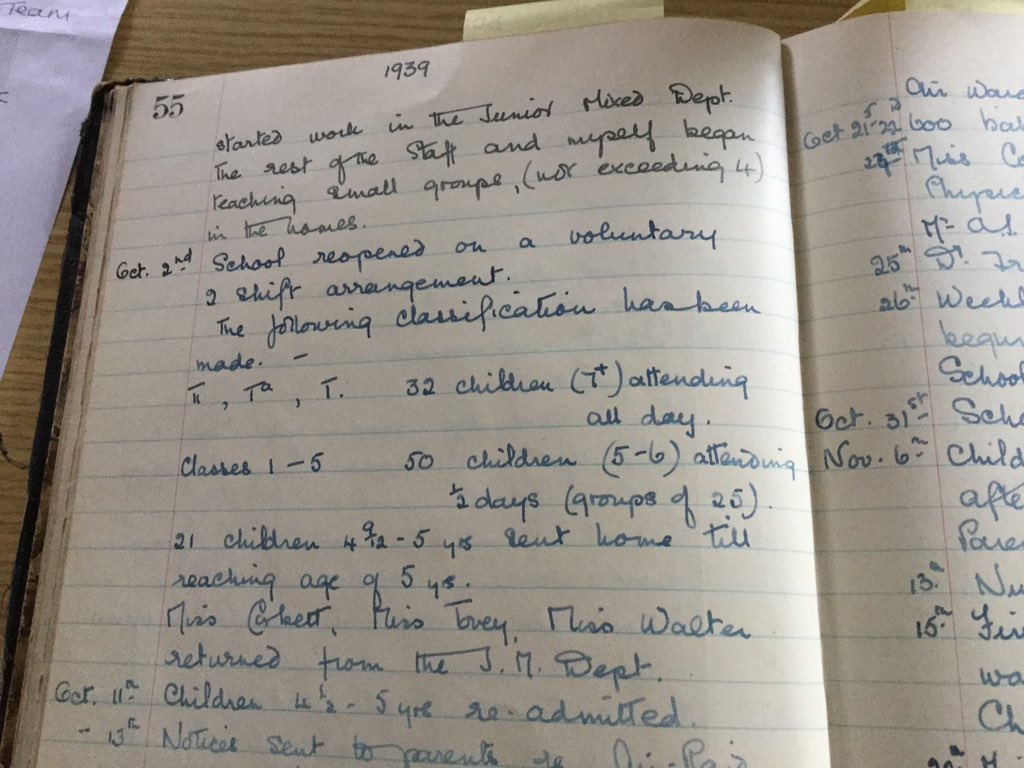 Team
1939
55
started work in the Junior Mixed Dept.
The rest of the Staff and myself began
teaching small groups, (not exceeding 4)
in the homes.
Oct. 2nd School reopened on a voluntary
2 shift arrangement.
The following classification has been
made. —
II, Ta, T. 32 children (7+) attending
all day.
Classes 1 – 5 50 children (5-6) attending
½ days (groups of 25).
21 children 4 9/12 – 5 yrs sent home till
reaching age of 5 yrs.
Miss Corbett, Miss Tovey, Miss Walter
returned from the J.M. Dept.
Oct. 11th Children 4 ½ – 5 yrs re-admitted.
– 13th Notices sent to parents re Air-Raid
Air
Oct 21st-22nd 600
Miss
25th Dr.
26th
begun
School
Oct. 31st
Nov. 6th
13th
15th